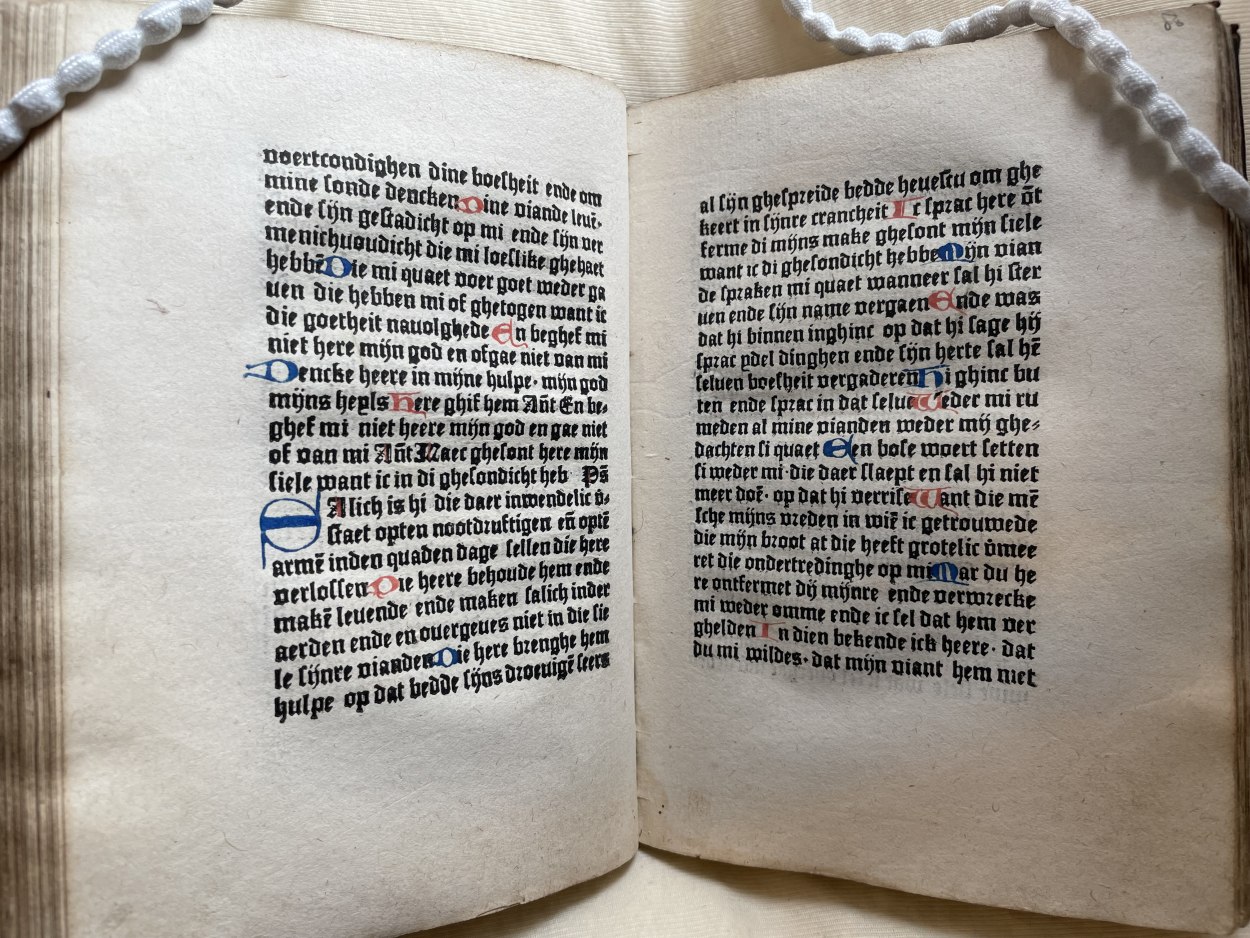 voertcondighen dine boesheit ende om
mine sonde dencken Dine viande leuē·
ende sijn gestadicht op mi ende sijn ver
menichuoudicht die mi loeslike ghehaet
hebbē Die mi quaet voer goet weder ga
uen die hebben mi of ghetogen want ic
die goetheit nauolghede En beghef mi
niet here mijn god en ofgae niet van mi
Dencke heere in mijne hulpe· mijn god
mijns heyls here ghif hem Ant̄ En be⸗
ghef mi niet heere mijn god en gae niet
of van mi Ant̄ Maec ghesont here mijn
siele want ic in di ghesondicht heb Ps̄
SAlich is hi die daer inwendelic v̄⸗
staet opten nootdruftigen en̄ optē
armē inden quaden dage sellen die here
verlossen Die heere behoude hem ende
makē leuende ende maken salich inder
aerden ende en ouergeues niet in die sie
le sijnre vianden Die here brenghe hem
hulpe op dat bedde sijns droeuigē seers
63
al sijn ghespreide bedde heuestu om ghe
keert in sijnre crancheit Ic sprac here ōt
ferme di mijns make ghesont mijn siele
want ic di ghesondicht hebbe Mijn vian
de spraken mi quaet wanneer sal hi ster
uen ende sijn name vergaen Ende was
dat hi binnen inghinc op dat hi sage hij
sprac ydel dinghen ende sijn herte sal hē
seluen boesheit vergaderen Hi ghinc bu
ten ende sprac in dat selue Weder mi ru
meden al mine vianden weder mij ghe⸗
dachten si quaet Een bose woert setten
si weder mi·die daer slaept en sal hi niet
meer doē· op dat hi verrise Want die mē
sche mijns vreden in wiē ic getrouwede
die mijn broot at die heeft grotelic v̄mee
ret die ondertredinghe op mi Mar du he
re ontfermet dij mijnre ende verwrecke
mi weder omme ende ic sel dat hem ver
ghelden In dien bekende ick heere· dat
du mi wildes· dat mijn viant hem niet